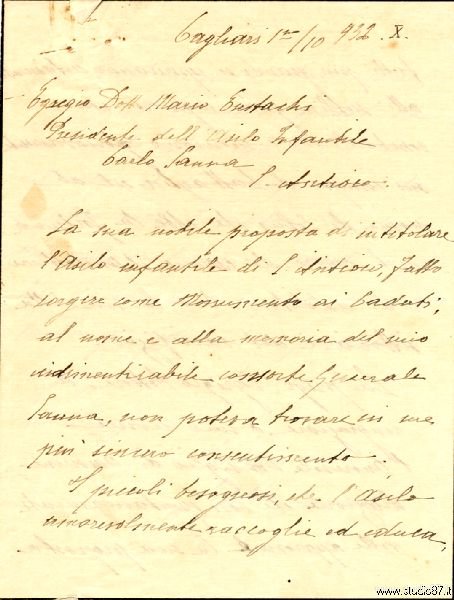 Cagliari 1mo/10 932. X.
Egregio Dott. Mario Eustachi
Presidente dell'Asilo Infantile
Carlo Sanna
S. Antioco.
La sua nobile proposta di intitolare
l'Asilo infantile di S. Antioco, fatto
sorgere come Monumento ai Caduti,
al nome e alla memoria del mio
indimenticabile consorte Generale
Sanna, non poteva trovare in me
più sincero consentimento.
I piccoli bisognosi, che l'Asilo
amorevolmente raccoglie ed educa,
www.studio87.it